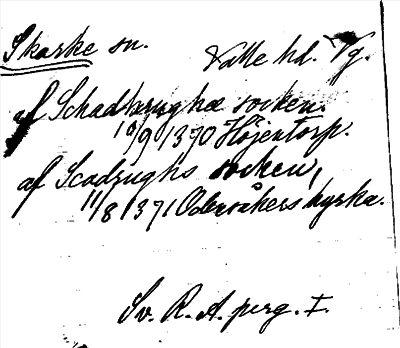 Skarke sn. Valle hd. Vg.
af Schadhrughæ socken
10/9 1370 Höjentorp.
af Scadrughs socken,
11/8 1371 Odensåkers kyrka.
Sv. R. A. perg. I.